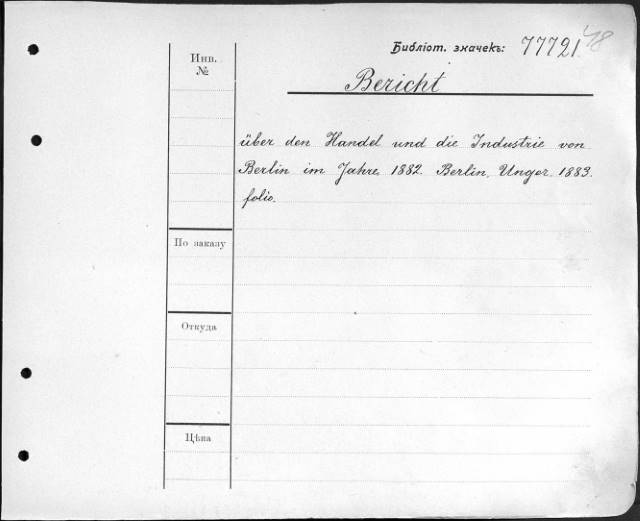 Библіот. значекъ: 77721 48
Инв.
№
Bericht
über den Handel und die Industrie von
Berlin im Jahre 1882. Berlin, Unger. 1883.
folio.
По заказу
Откуда
Цѣна